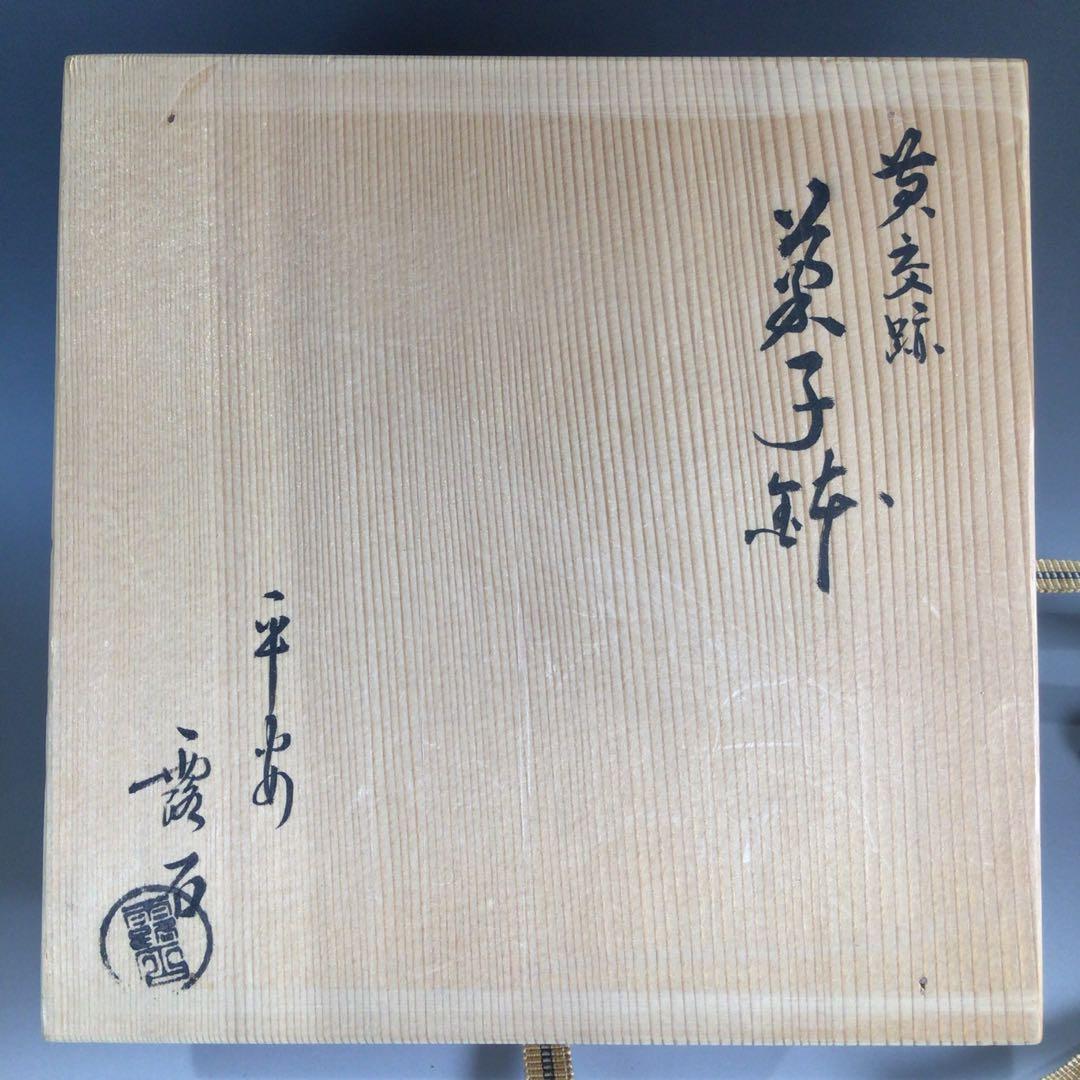 黄交趾
菓子鉢
平安
露石